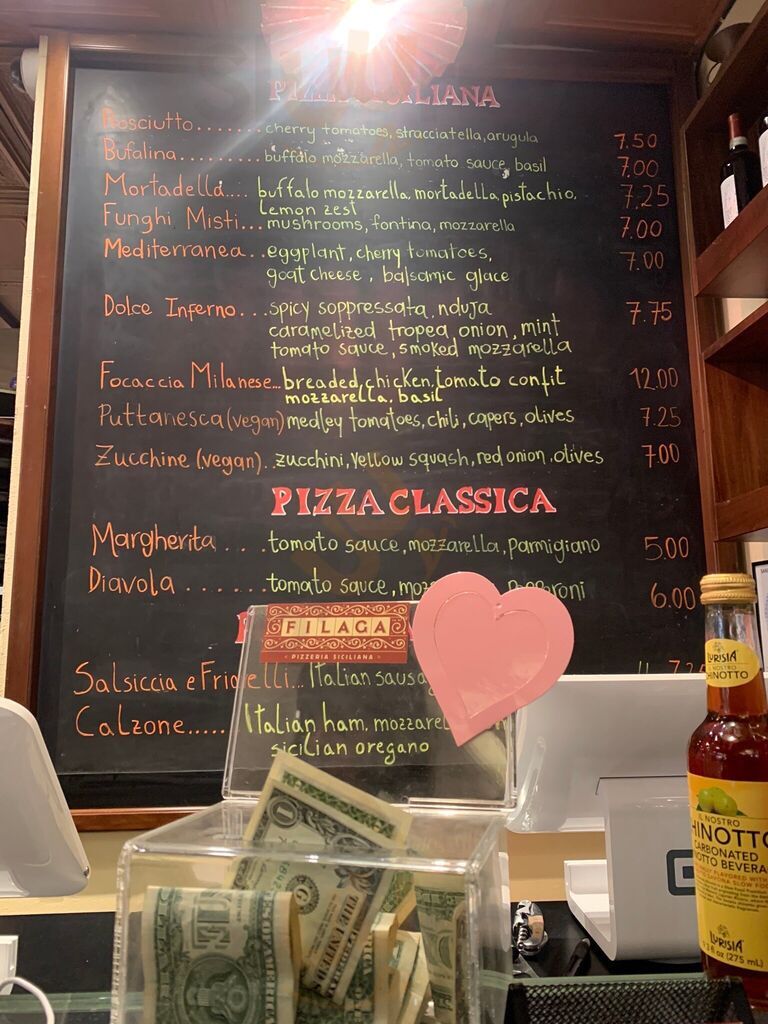 PIZZA SICILIANA
Prosciutto....... cherry tomatoes, stracciatella, arugula 7.50
Bufalina......... buffalo mozzarella, tomato sauce, basil 7.00
Mortadella.... buffalo mozzarella, mortadella, pistachio, 7.25
lemon zest
Funghi Misti... mushrooms, fontina, mozzarella 7.00
Mediterranea.. eggplant, cherry tomatoes, 7.00
goat cheese, balsamic glace
Dolce Inferno... spicy soppressata, nduja 7.75
caramelized tropea onion, mint
tomato sauce, smoked mozzarella
Focaccia Milanese... breaded, chicken, tomato confit 12.00
mozzarella, basil
Puttanesca (vegan) medley tomatoes, chili, capers, olives 7.25
Zucchine (vegan).. zucchini, yellow squash, red onion, olives 7.00
PIZZA CLASSICA
Margherita .... tomato sauce, mozzarella, parmigiano 5.00
Diavola ...... tomato sauce, 6.00
FILAGA
PIZZERIA SICILIANA
Salsiccia e Italian
Calzone..... Italian ham,
sicilian oregano
LURISIA
CHINOTTO
IL NOSTRO
HINOTTO
CARBONATED
LURISIA
(275 mL)